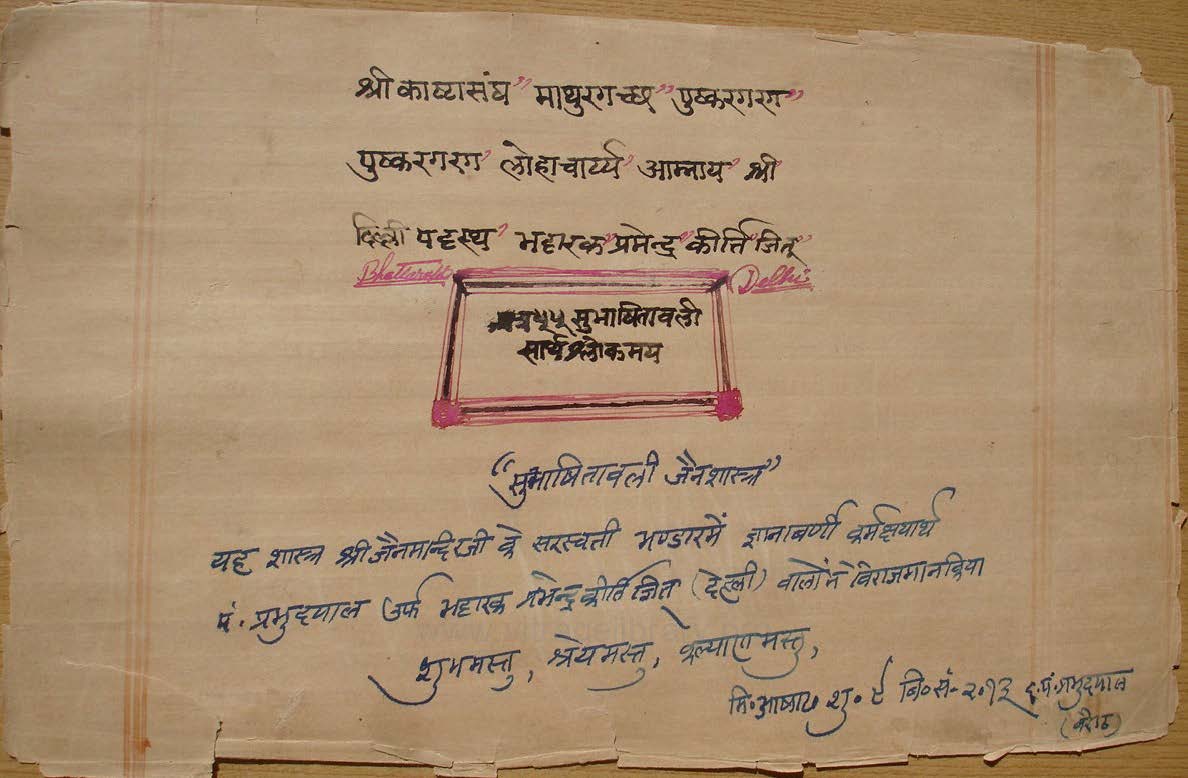 श्री काष्टासंघ” माथुरगच्छ” पुष्करगरग”
पुष्करगरग” लोहाचार्य्य” आम्नाय” श्री
दिल्ली पट्टस्थ” भट्टारक” प्रमेन्द्र” कीर्त्ति जित्”
Delhi
सुभाषितावली
सार्थ श्लोकमय
“सुभाषितावली जैनशास्त्र”
यह शास्त्र श्री जैनमन्दिरजी के सरस्वती भण्डारमें ज्ञानाबर्णी कर्मक्षयार्थ
पं. प्रभुदयाल उर्फ भट्टारक प्रेमेन्द्र कीर्ति जित् (देहली) वालोंने विराजमान किया
शुभमस्तु, श्रेयमस्तु, कल्याणमस्तु,
मि॰ आषाढ॰ शु॰ ८ बि॰ सं॰ २०१३ द. पं. प्रभुदयाल